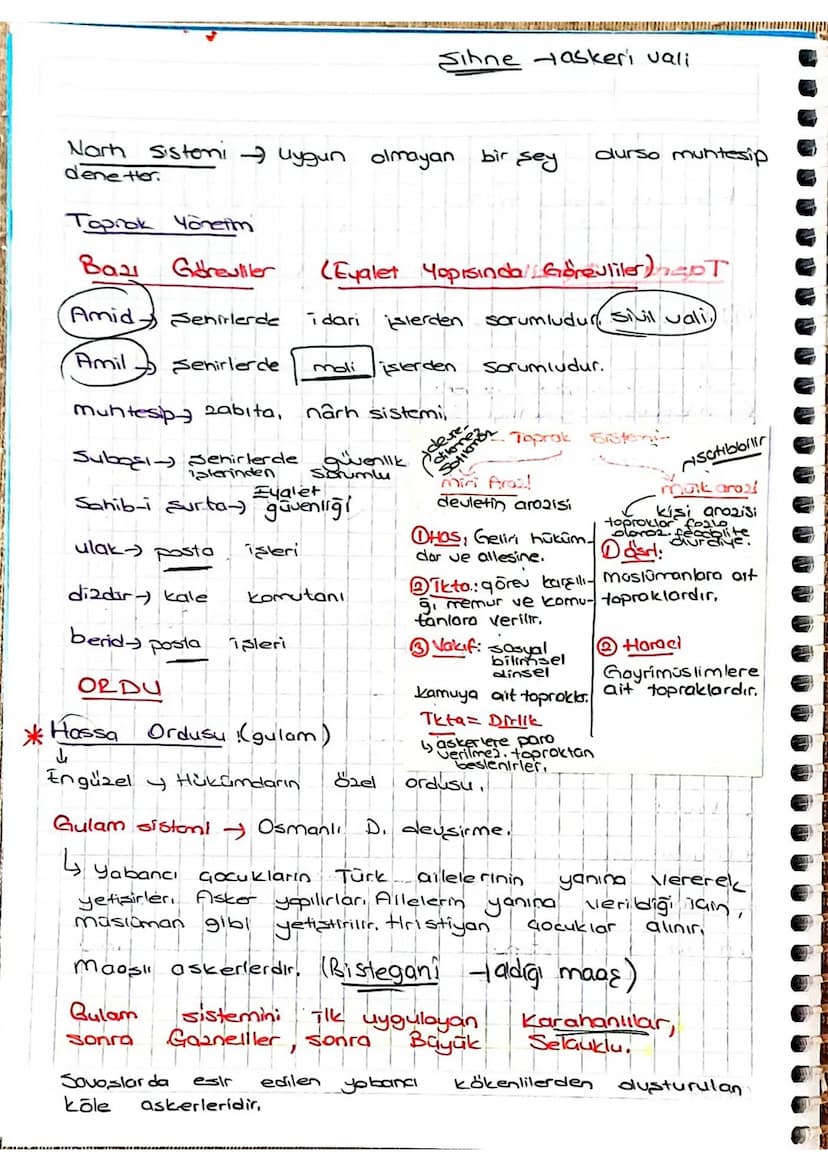 Şıhne → askeri vali
Narh sistemi → uygun olmayan bir şey olursa muhtesip
denetler.
Toprak Yönetim
Bazı Görevliler (Eyalet Yapısında Görevliler)
Amid → şehirlerde idari işlerden sorumludur. sivil vali.
Amil → şehirlerde mali işlerden sorumludur.
muhtesip → zabıta, nârh sistemi.
Subaşı → şehirlerde güvenlik
işlerinden sorumlu
Sahib-i şurta → Eyalet
güvenliği
ulak → posta işleri
dizdar → kale komutanı
berid → posta işleri
ORDU
Toprak Sistemi
miri Arazi
devletin arazisi
① Has: Geliri hüküm-
dar ve ailesine.
② İkta: görev karşılı-
ğı memur ve komu-
tanlara verilir.
③ Vakıf: sosyal
bilimsel
dinsel
kamuya ait topraklar.
İkta = Dirlik
↳ askerlere para
verilmez. topraktan
beslenirler.
→ satılabilir
mülk arazi
kişi arazisi
topraklar fazla
① öşri:
müslümanlara ait
topraklardır.
② Haraci
Gayrimüslimlere
ait topraklardır.
* Hassa Ordusu: (gulam)
↓
En güzel → Hükümdarın özel ordusu.
Gulam sistemi → Osmanlı D. devşirme.
↳ yabancı çocukların Türk ailelerinin yanına vererek
yetişirler. Asker yapılırlar. Ailelerin yanına verildiği için,
müslüman gibi yetiştirilir. Hristiyan çocuklar alınır.
Maaşlı askerlerdir. (Bistegani → aldığı maaş)
Gulam sistemini ilk uygulayan Karahanlılar,
sonra Gazneliler, sonra Büyük Selçuklu.
Savaşlarda esir edilen yabancı kökenlilerden oluşturulan
köle askerleridir.